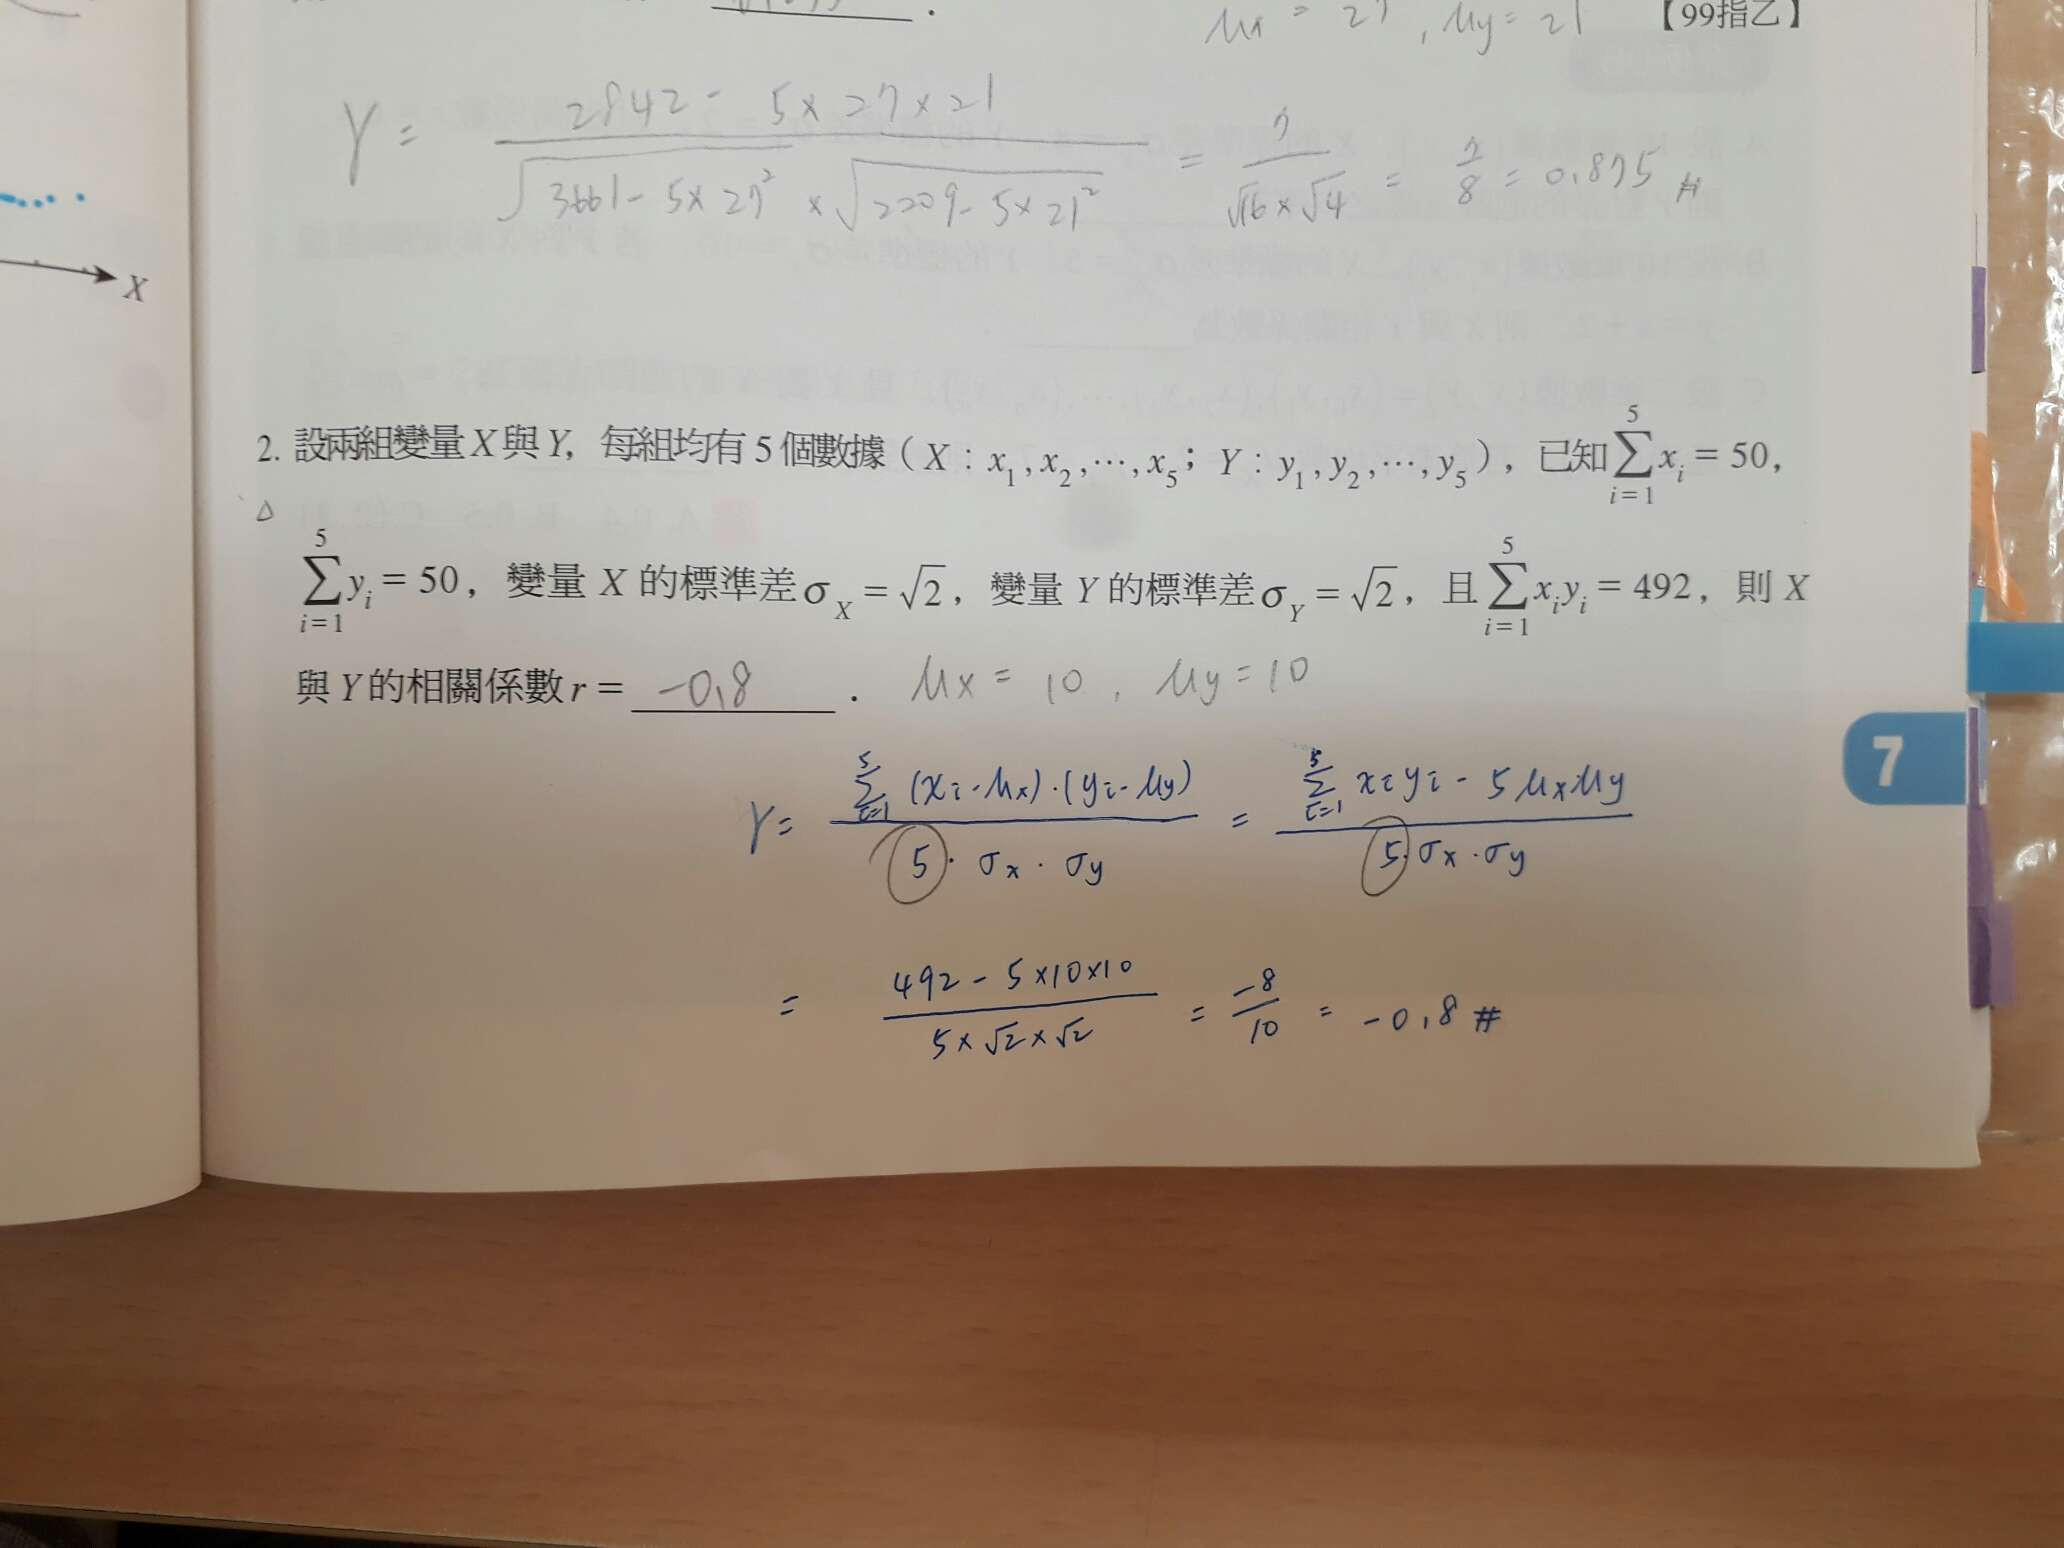 μx = 27 , μy = 21 【99指乙】
γ = (2842 - 5×27×21) / (√(3661 - 5×27²) × √(2209 - 5×21²)) = 7 / (√16 × √4) = 7/8 = 0.875 #
X
2. 設兩組變量 X 與 Y，每組均有 5 個數據（X：x₁, x₂, ⋯, x₅；Y：y₁, y₂, ⋯, y₅），已知 ∑_{i=1}^{5} xᵢ = 50，
△
∑_{i=1}^{5} yᵢ = 50，變量 X 的標準差 σ_X = √2，變量 Y 的標準差 σ_Y = √2，且 ∑_{i=1}^{5} xᵢyᵢ = 492，則 X
與 Y 的相關係數 r = -0.8 . μx = 10 , μy = 10
7
γ = ∑_{i=1}^{5} (xi - μx)·(yi - μy) / (5·σx·σy) = (∑_{i=1}^{5} xi yi - 5μxμy) / (5·σx·σy)
= (492 - 5×10×10) / (5×√2×√2) = -8/10 = -0.8 #